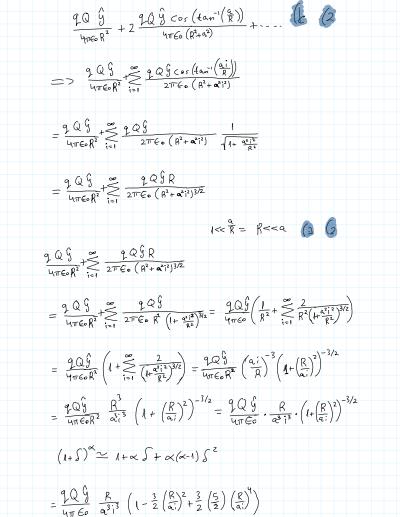 qQŷ/4πε₀R² + 2 qQŷ cos(tan⁻¹(a/R))/4πε₀(R²+a²) + .....
=> qQŷ/4πε₀R² + ∑_{i=1}^{∞} qQŷ cos(tan⁻¹(ai/R))/2πε₀(R²+a²i²)
= qQŷ/4πε₀R² + ∑_{i=1}^{∞} qQŷ/2πε₀(R²+a²i²) 1/√(1+a²i²/R²)
= qQŷ/4πε₀R² + ∑_{i=1}^{∞} qQŷR/2πε₀(R²+a²i²)^{3/2}
1<<a/R = R<<a
qQŷ/4πε₀R² + ∑_{i=1}^{∞} qQŷR/2πε₀(R²+a²i²)^{3/2}
= qQŷ/4πε₀R² + ∑_{i=1}^{∞} qQŷ/2πε₀R²(1+a²i²/R²)^{3/2} = qQŷ/4πε₀ (1/R² + ∑_{i=1}^{∞} 2/R²(1+a²i²/R²)^{3/2})
= qQŷ/4πε₀R² (1+∑_{i=1}^{∞} 2/(1+a²i²/R²)^{3/2}) = qQŷ/4πε₀R² (ai/R)^{-3} (1+(R/ai)²)^{-3/2}
= qQŷ/4πε₀R² R³/a³i³ (1+(R/ai)²)^{-3/2} = qQŷ/4πε₀ · R/a³i³ · (1+(R/ai)²)^{-3/2}
(1+δ)^α ≃ 1+αδ+α(α-1)δ²
= qQŷ/4πε₀ R/a³i³ (1-3/2(R/ai)²+3/2(5/2)(R/ai)⁴)